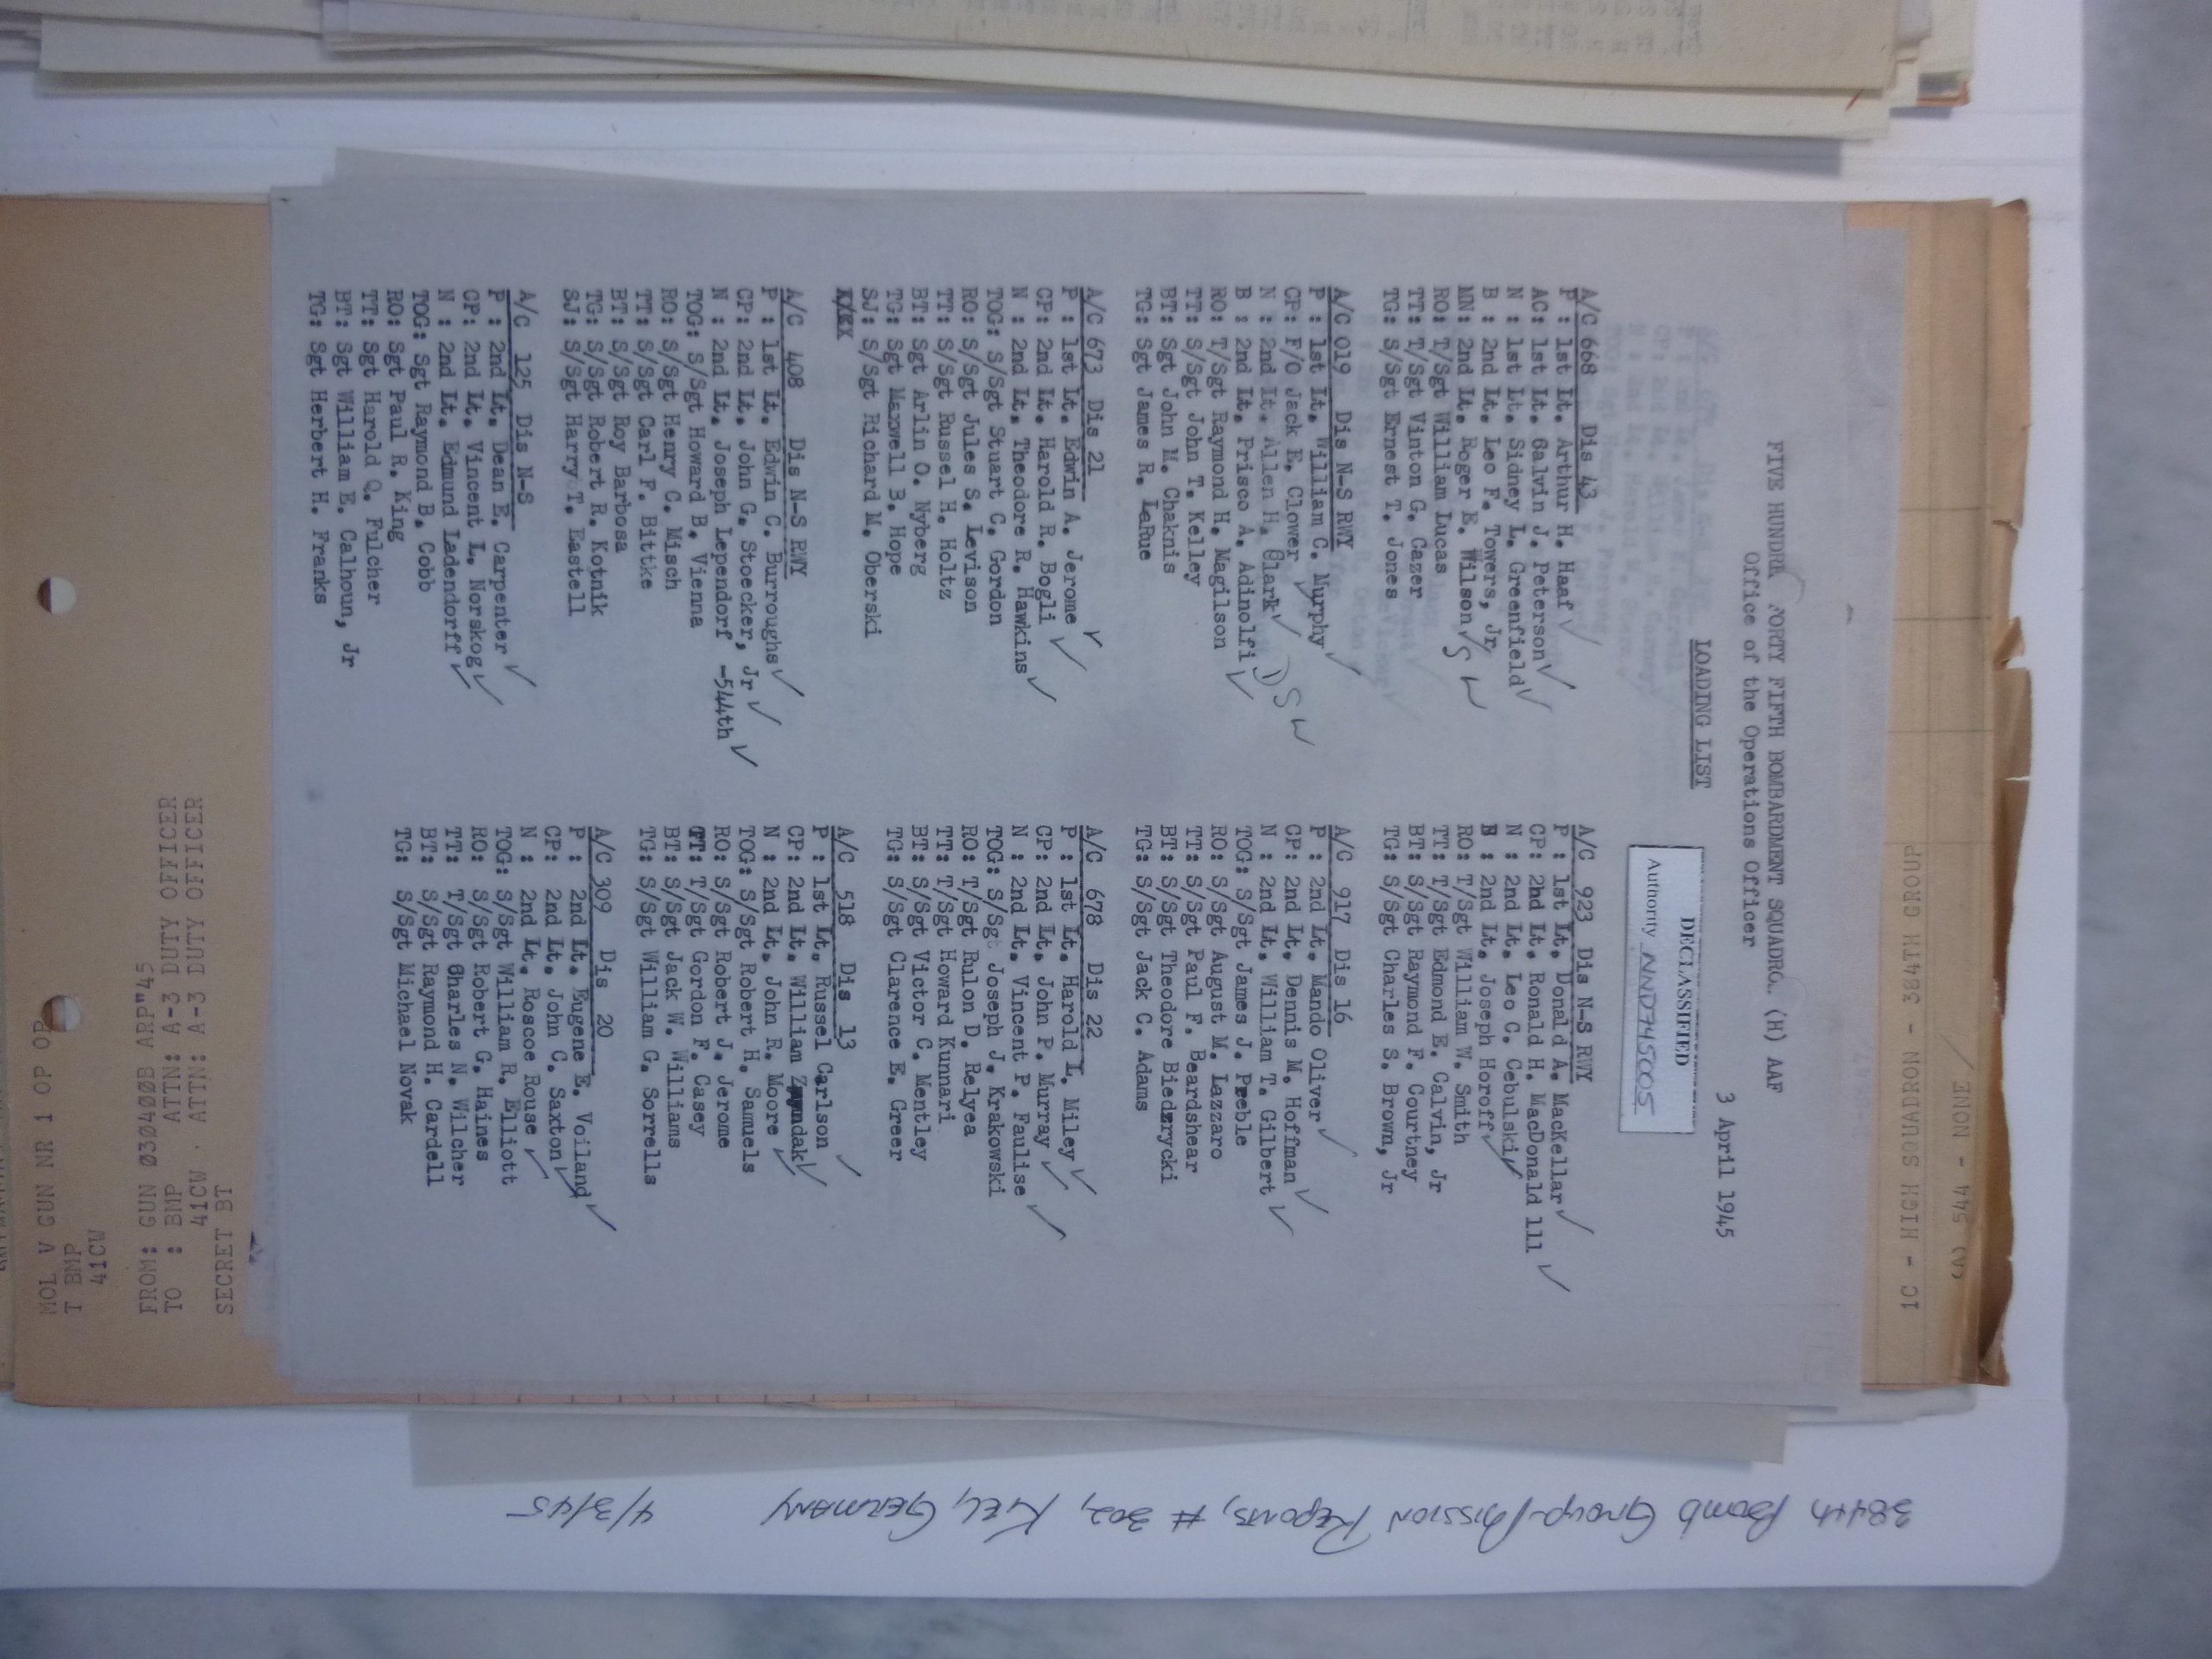 FIVE HUNDRE FORTY FIFTH BOMBARDMENT SQUADRO. (H) AAF
Office of the Operations Officer
3 April 1945
LOADING LIST
DECLASSIFIED
Authority NND745005
A/C 668 Dis 43
P : 1st Lt. Arthur H. Haaf ✓
AC: 1st Lt. Galvin J. Peterson ✓
N : 1st Lt. Sidney L. Greenfield ✓
B : 2nd Lt. Leo F. Towers, Jr
MN: 2nd Lt. Roger E. Wilson ✓ S W
RO: T/Sgt William Lucas
TT: T/Sgt Vinton G. Cazer
TG: S/Sgt Ernest T. Jones
A/C 019 Dis N-S RWY
P : 1st Lt. William C. Murphy ✓
CP: F/O Jack E. Clower ✓
N : 2nd Lt. Allen H. Clark ✓ D S W
B : 2nd Lt. Prisco A. Adinolfi ✓
RO: T/Sgt Raymond H. Magilson
TT: S/Sgt John T. Kelley
BT: Sgt John M. Chaknis
TG: Sgt James R. LaRue
A/C 673 Dis 21
P : 1st Lt. Edwin A. Jerome ✓
CP: 2nd Lt. Harold R. Bogli ✓
N : 2nd Lt. Theodore R. Hawkins ✓
TOG: S/Sgt Stuart C. Gordon
RO: S/Sgt Jules S. Levison
TT: S/Sgt Russel H. Holtz
BT: Sgt Arlin O. Nyberg
TG: Sgt Maxwell B. Hope
SJ: S/Sgt Richard M. Oberski
A/C 408 Dis N-S RWY
P : 1st Lt. Edwin C. Burroughs ✓
CP: 2nd Lt. John G. Stoecker, Jr ✓
N : 2nd Lt. Joseph Lependorf -544th ✓
TOG: S/Sgt Howard B. Vienna
RO: S/Sgt Henry C. Misch
TT: S/Sgt Carl F. Bittke
BT: S/Sgt Roy Barbosa
TG: S/Sgt Robert R. Kotnik
SJ: S/Sgt Harry T. Eastell
A/C 125 Dis N-S
P : 2nd Lt. Dean E. Carpenter ✓
CP: 2nd Lt. Vincent L. Norskog ✓
N : 2nd Lt. Edmund Ladendorff ✓
TOG: Sgt Raymond B. Cobb
RO: Sgt Paul R. King
TT: Sgt Harold Q. Fulcher
BT: Sgt William E. Calhoun, Jr
TG: Sgt Herbert H. Franks
A/C 923 Dis N-S RWY
P : 1st Lt. Donald A. MacKellar ✓
CP: 2nd Lt. Ronald H. MacDonald 111 ✓
N : 2nd Lt. Leo C. Cebulski ✓
B : 2nd Lt. Joseph Horoff ✓
RO: T/Sgt William W. Smith
TT: T/Sgt Edmond E. Calvin, Jr
BT: S/Sgt Raymond F. Courtney
TG: S/Sgt Charles S. Brown, Jr
A/C 917 Dis 16
P : 2nd Lt. Mando Oliver ✓
CP: 2nd Lt. Dennis M. Hoffman ✓
N : 2nd Lt. William T. Gilbert ✓
TOG: S/Sgt James J. Preble
RO: S/Sgt August M. Lazzaro
TT: S/Sgt Paul F. Beardshear
BT: S/Sgt Theodore Biedzrycki
TG: S/Sgt Jack C. Adams
A/C 678 Dis 22
P : 1st Lt. Harold L. Miley ✓
CP: 2nd Lt. John P. Murray ✓
N : 2nd Lt. Vincent P. Faulise ✓
TOG: S/Sgt Joseph J. Krakowski
RO: T/Sgt Rulon D. Relyea
TT: T/Sgt Howard Kunnari
BT: S/Sgt Victor C. Mentley
TG: S/Sgt Clarence E. Greer
A/C 518 Dis 13
P : 1st Lt. Russel Carlson ✓
CP: 2nd Lt. William Zyyndak ✓
N : 2nd Lt. John R. Moore ✓
TOG: S/Sgt Robert H. Samuels
RO: S/Sgt Robert J. Jerome
TT: T/Sgt Gordon F. Casey
BT: S/Sgt Jack W. Williams
TG: S/Sgt William G. Sorrells
A/C 309 Dis 20
P : 2nd Lt. Eugene E. Voiland ✓
CP: 2nd Lt. John C. Saxton ✓
N : 2nd Lt. Roscoe Rouse ✓
TOG: S/Sgt William R. Elliott
RO: S/Sgt Robert G. Haines
TT: T/Sgt Charles N. Wilcher
BT: S/Sgt Raymond H. Cardell
TG: S/Sgt Michael Novak
1C - HIGH SQUADRON - 384TH GROUP
NONE - 544 (A)
SECRET BT
41CW . ATTN: A-3 DUTY OFFICER
TO : BMP ATTN: A-3 DUTY OFFICER
FROM: GUN 030400B ARP"45
41CW
T BMP
MOL V GUN NR 1 OP OP
384th Bomb Group-Mission Reports, # 302, Kiel, Germany 4/3/45